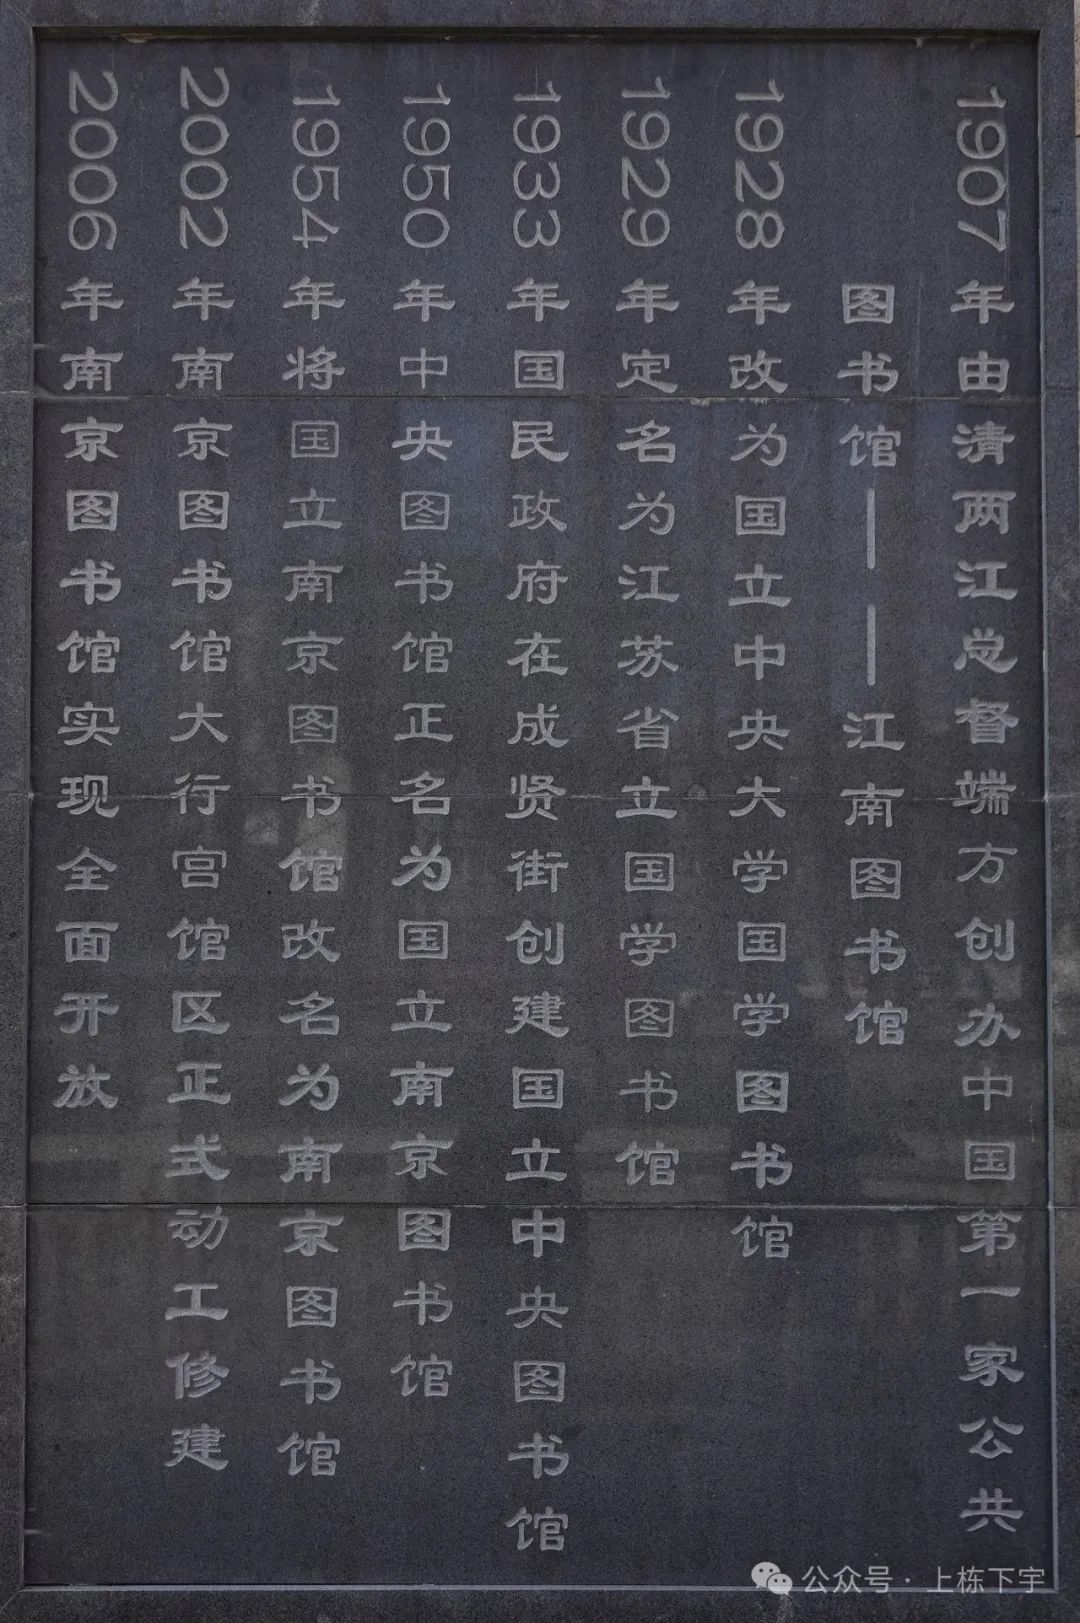 1907年由清两江总督端方创办中国第一家公共
图书馆——江南图书馆
1928年改为国立中央大学国学图书馆
1929年定名为江苏省立国学图书馆
1933年国民政府在成贤街创建国立中央图书馆
1950年中央图书馆正名为国立南京图书馆
1954年将国立南京图书馆改名为南京图书馆
2002年南京图书馆大行宫馆区正式动工修建
2006年南京图书馆实现全面开放
公众号·上栋下宇